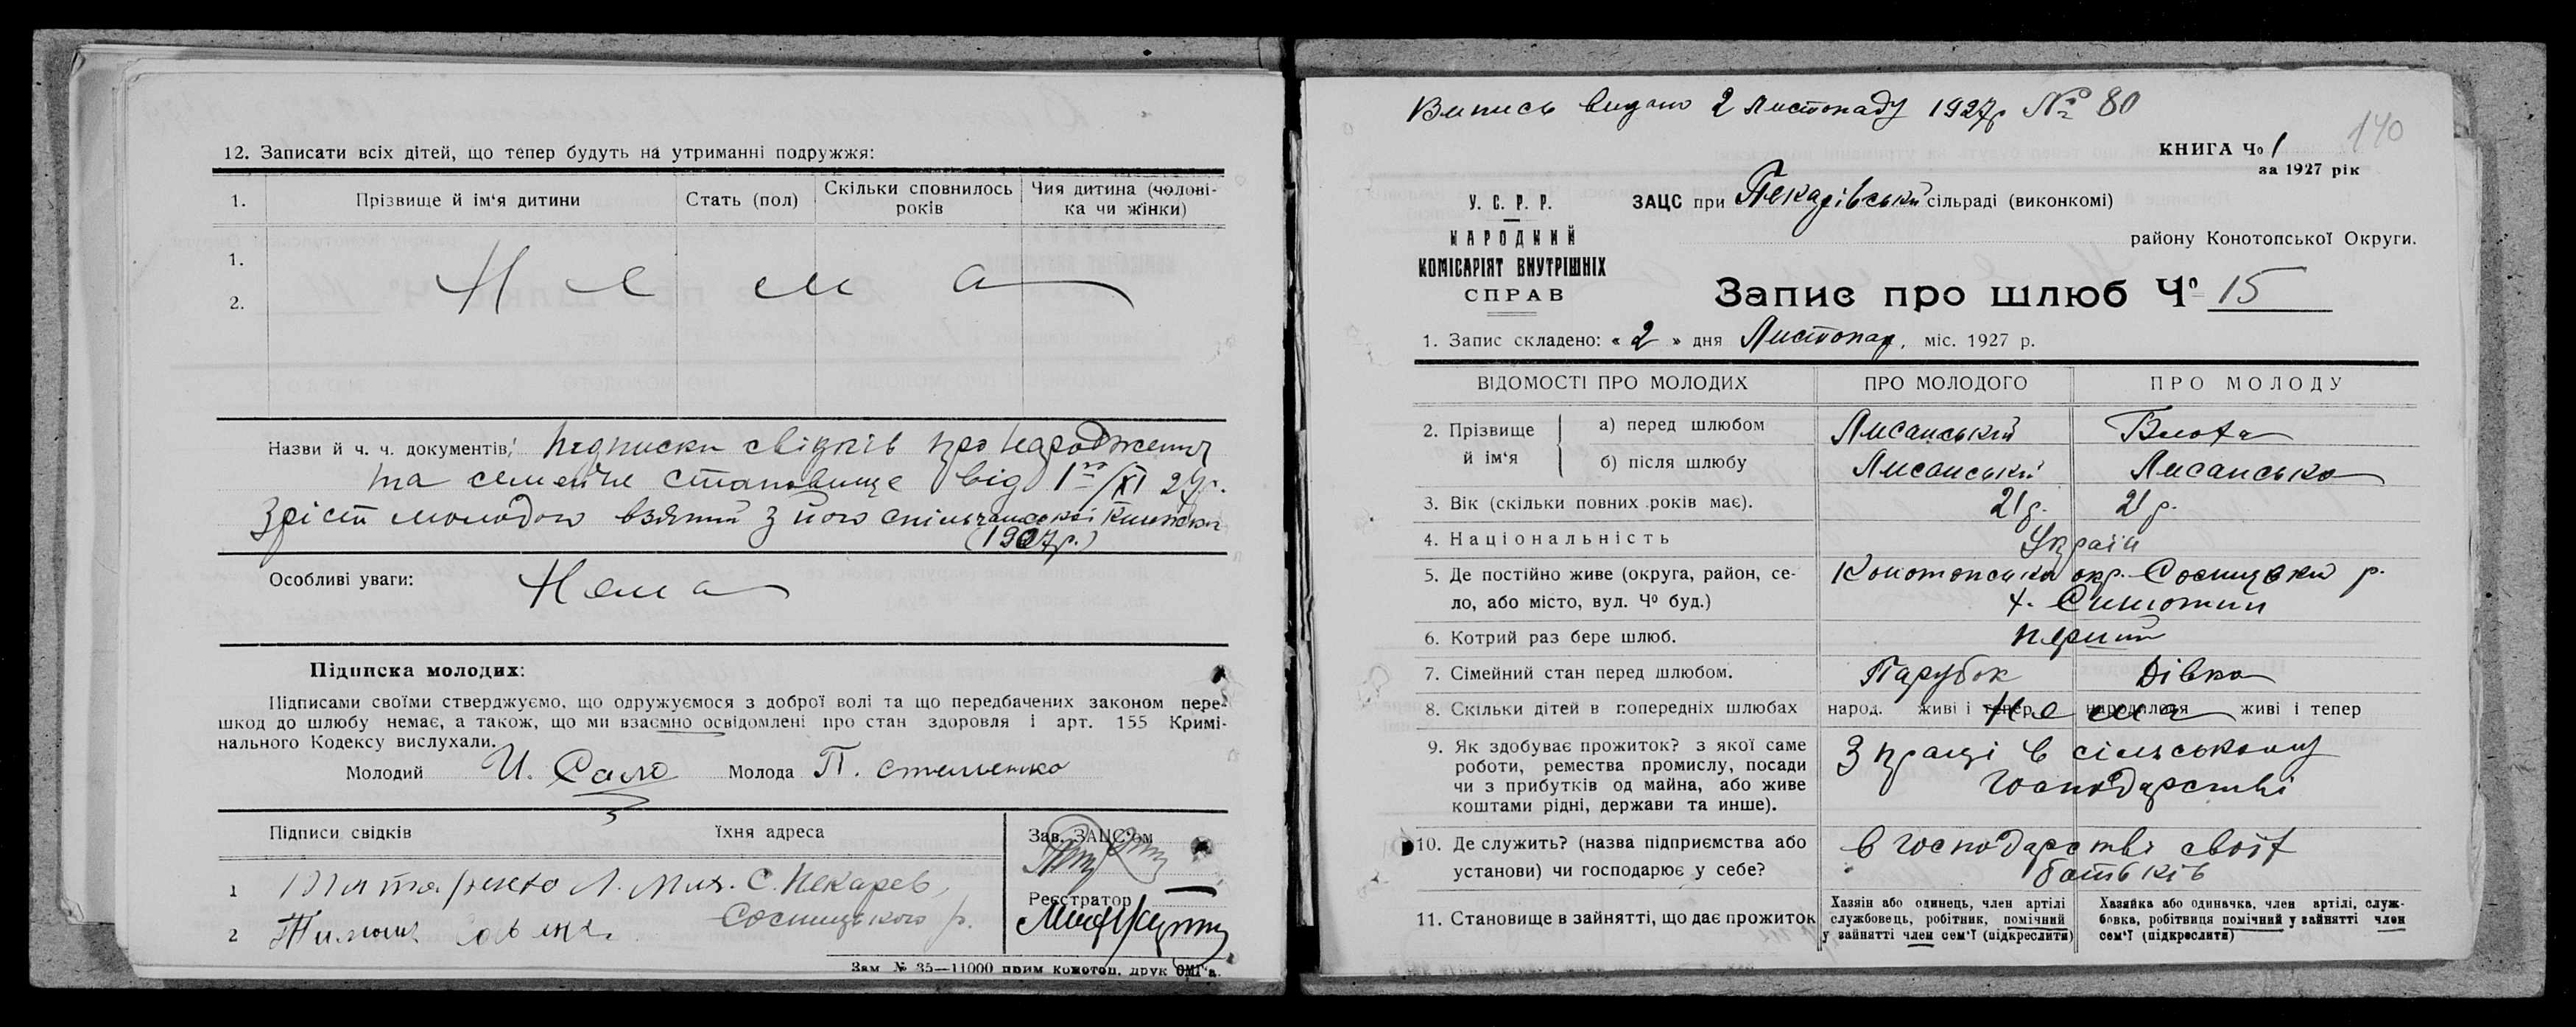 12. Записати всіх дітей, що тепер будуть на утриманні подружжя:
1. Прізвище й ім'я дитини Стать (пол) Скільки сповнилось років Чия дитина (чоловіка чи жінки)
1.
2.
Нема
Назви й ч. ч. документів: підписки свідків про народження
та семейне становище від 1го/XI 27р.
Зріст молодого взятий з його спільчанської книжки
(1907р.)
Особливі уваги: Нема
Підписка молодих:
Підписами своїми стверджуємо, що одружуємося з доброї волі та що передбачених законом пере-
шкод до шлюбу немає, а також, що ми взаємно освідомлені про стан здоровля і арт. 155 Кримі-
нального Кодексу вислухали.
Молодий И. Сало Молода П.
Підписи свідків Їхня адреса
1 Л. Мих. С. Пекарев,
2 Сосницького р.
Зав. ЗАЦС'ом
Реєстратор
Зам № 35—11000 прим конотоп. друк ОМГ'а.
Випись видано 2 листопаду 1927р № 80
140
КНИГА Чо 1
за 1927 рік
У. С. Р. Р.
НАРОДНИЙ
КОМІСАРІЯТ ВНУТРІШНІХ
СПРАВ
ЗАЦС при Пекарівській сільраді (виконкомі)
району Конотопської Округи.
Запис про шлюб Чо 15
1. Запис складено: « 2 » дня Листопад, міс. 1927 р.
ВІДОМОСТІ ПРО МОЛОДИХ ПРО МОЛОДОГО ПРО МОЛОДУ
2. Прізвище й ім'я
а) перед шлюбом Лисанський Блоха
б) після шлюбу Лисанський Лисанська
3. Вік (скільки повних років має). 21 р. 21 р.
4. Національність Україн
5. Де постійно живе (округа, район, се-
ло, або місто, вул. Чо буд.)
Конотопська окр. Сосницьки р.
х.
6. Котрий раз бере шлюб. перший
7. Сімейний стан перед шлюбом. Парубок Дівка
8. Скільки дітей в попередніх шлюбах народ. живі і тепер народилося живі і тепер
Нема
9. Як здобуває прожиток? з якої саме
роботи, ремества промислу, посади
чи з прибутків од майна, або живе
коштами рідні, держави та инше).
З праці в сільському
господарстві
10. Де служить? (назва підприємства або
установи) чи господарює у себе?
в господарстві своїх
батьків
11. Становище в зайнятті, що дає прожиток
Хазяін або одинець, член артілі
службовець, робітник, помічний
у зайнятті член сем'ї (підкреслити)
Хазяйка або одиначка, член артілі, служ-
бовка, робітниця помічний у зайнятті член
сем'ї (підкреслити)